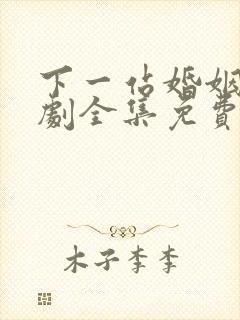 下一站婚姻
劇全集免費
木子李李